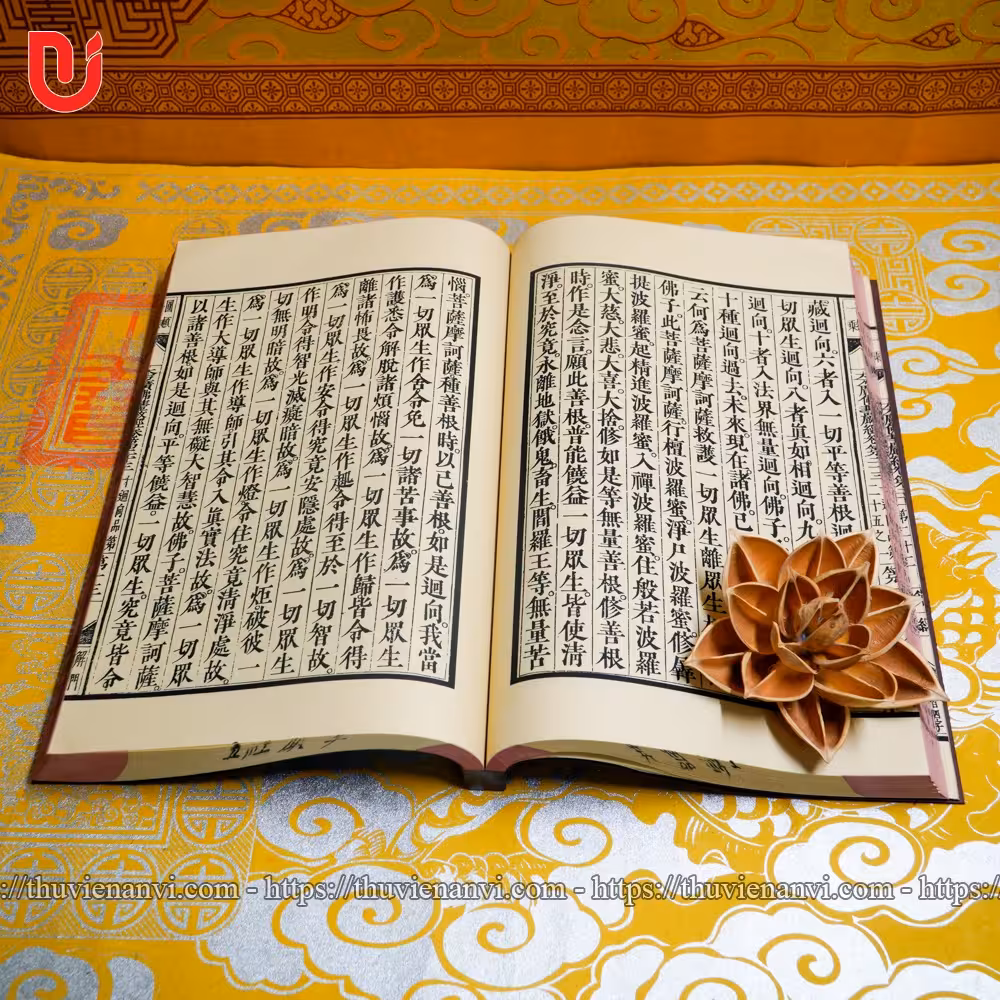 藏迴向。六者入一切平等善根迴
切眾生迴向。八者真如相迴向。九
迴向。十者入法界無量迴向。佛子。
十種迴向。過去未來現在諸佛已
云何爲菩薩摩訶薩救護一切眾生離眾生
佛子。此菩薩摩訶薩。行檀波羅蜜。淨尸波羅蜜。修羼
提波羅蜜。起精進波羅蜜。入禪波羅蜜。住般若波羅
蜜。大慈。大悲。大喜。大捨。修如是等無量善根。修善根
時。作是念言。願此善根。普能饒益一切眾生。皆使清
淨。至於究竟。永離地獄。餓鬼。畜生。閻羅王等。無量苦
惱。菩薩摩訶薩。種善根時。以己善根。如是迴向。我當
爲一切眾生作舍。令免一切諸苦事故。爲一切眾生
作護。悉令解脫諸煩惱故。爲一切眾生作歸。皆令得
離諸怖畏故。爲一切眾生作趣。令得至於一切智故。
爲一切眾生作安。令得究竟安隱處故。爲一切眾生
作明。令得智光。滅癡暗故。爲一切眾生作炬。破彼一
切無明暗故。爲一切眾生作燈。令住究竟清淨處故。
爲一切眾生作導師。引其令入真實法故。爲一切眾
生作大導師。與其無礙大智慧故。佛子。菩薩摩訶薩。
以諸善根。如是迴向。平等饒益一切眾生。究竟皆令
https://thuvienanvi.com - https://thuvienanvi.com - https://thuvienanvi.com